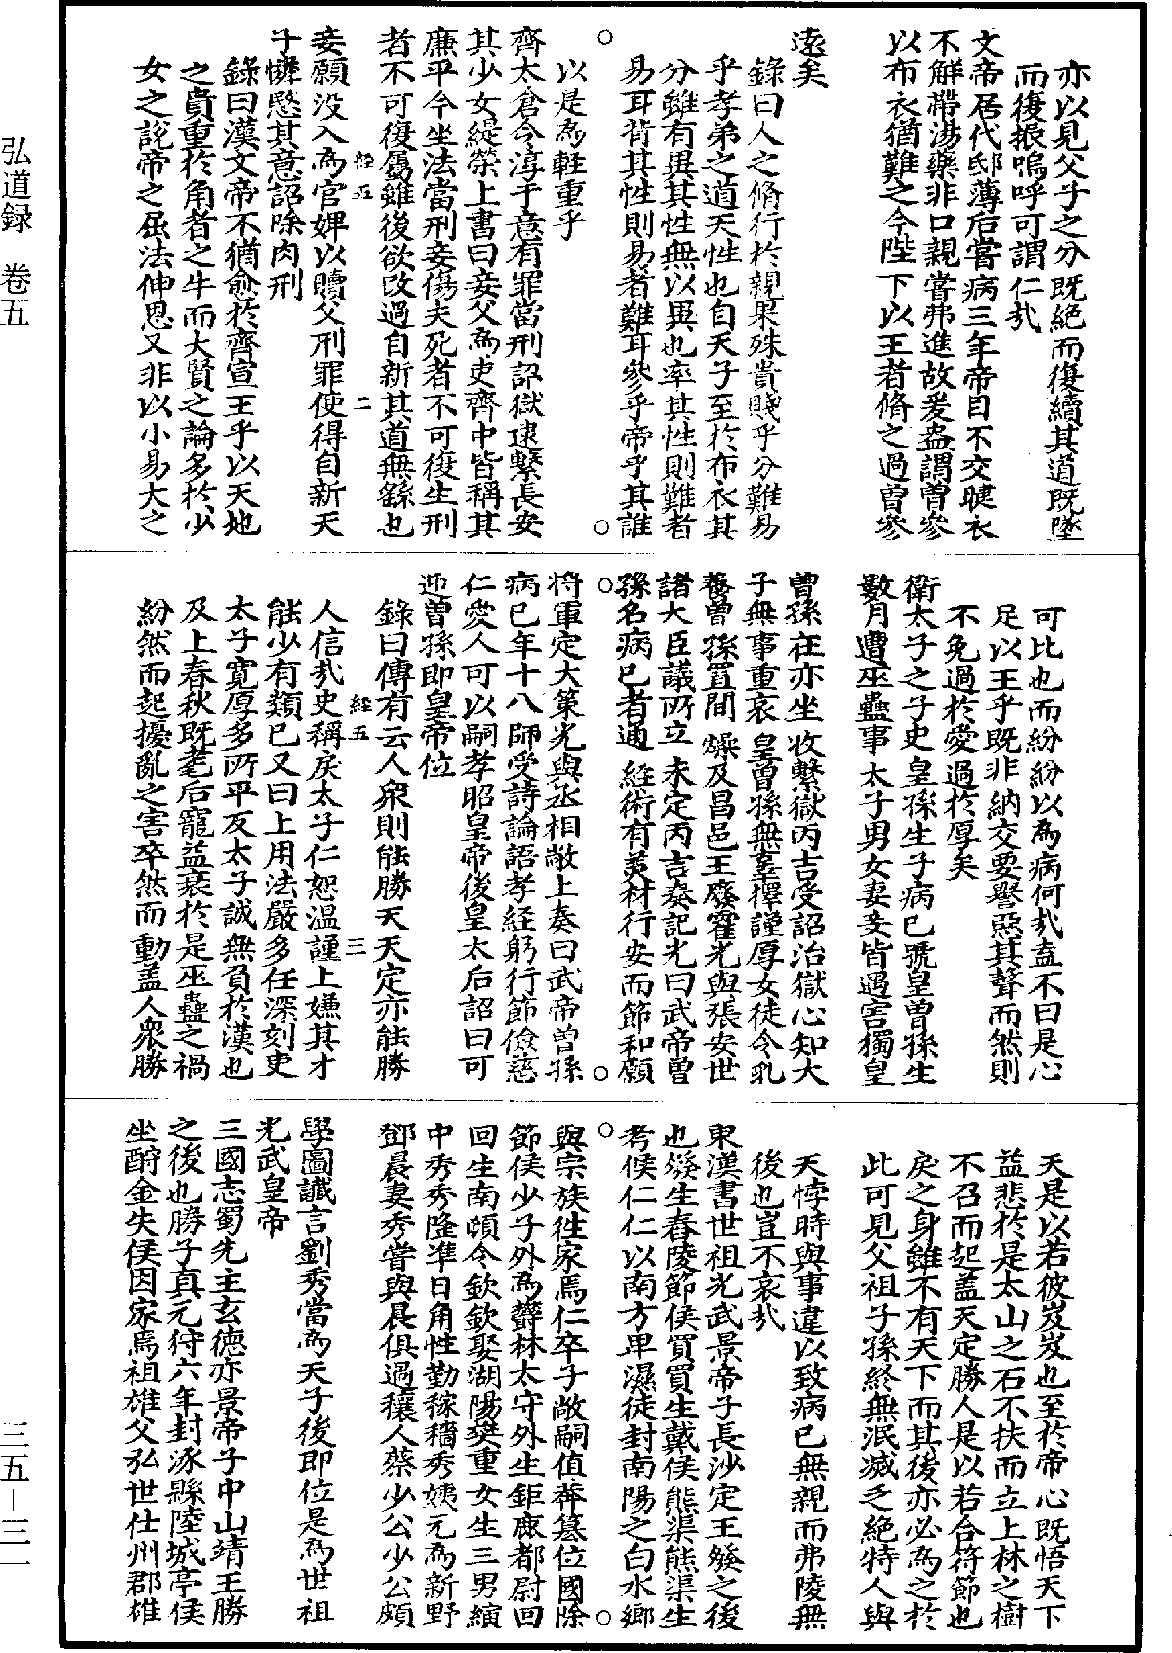 亦以見父子之分既絕而復續其道既墜
而復振嗚呼可謂仁㢤
文帝居代邸薄后嘗病三年帝目不交睫衣
不解帶湯藥非口親嘗弗進故爰盎謂曾參
以布衣猶難之今陛下以王者脩之過曾參
遠矣
錄曰人之脩行於親果殊貴賤乎分難易
乎孝弟之道天性也自天子至於布衣其
分雖有異其性無以異也率其性則難者
易耳背其性則易者難耳參乎帝乎其誰
以是為輕重乎
○
齊太倉令淳于意有罪當刑詔獄逮繫長安
其少女緹縈上書曰妾父為吏齊中皆稱其
廉平今坐法當刑妾傷夫死者不可復生刑
者不可復屬雖後欲改過自新其道無繇也
經五
二
妾願没入為官婢以贖父刑罪使得自新天
子憐愍其意詔除肉刑
錄曰漢文帝不猶愈於齊宣王乎以天地
之貴重於角者之牛而大賢之論多於少
女之說帝之屈法伸恩又非以小易大之
可比也而紛紛以為病何㢤盍不曰是心
足以王乎既非納交要譽惡其聲而然則
不免過於愛過於厚矣
衛太子之子史皇孫生子病已號皇曾孫生
數月遭巫蠱事太子男女妻妾皆遇害獨皇
曾孫在亦坐收繫獄丙吉受詔治獄心知大
子無事重哀皇曾孫無辜擇謹厚女徒令乳
養曾孫置間燥及昌邑王廢霍光與張安世
諸大臣議所立未定丙吉奏記光曰武帝曾
孫名病已者通經術有美材行安而節和願
○
將軍定大策光與丞相敞上奏曰武帝曾孫
病已年十八師受詩論語孝經躬行節儉慈
仁愛人可以嗣孝昭皇帝後皇太后詔曰可
迎曾孫即皇帝位
錄曰傳有云人衆則能勝天天定亦能勝
經五
三
人信㢤史稱戾太子仁恕温謹上嫌其才
能少有類已又曰上用法嚴多任深刻吏
太子寬厚多所平反太子誠無負於漢也
及上春秋既耄后寵益衰於是巫蠱之禍
紛然而起擾亂之害卒然而動盖人衆勝
天是以若彼岌岌也至於帝心既悟天下
益悲於是太山之石不扶而立上林之樹
不召而起盖天定勝人是以若合符節也
戾之身雖不有天下而其後亦必為之於
此可見父祖子孫終無泯滅乏絕特人與
天悖時與事違以致病已無親而弗陵無
後也豈不哀㢤
東漢書世祖光武景帝子長沙定王發之後
也發生舂陵節侯買買生戴侯熊渠熊渠生
考侯仁仁以南方卑濕徒封南陽之白水鄉
○
與宗族徃家焉仁卒子敞嗣值莽簒位國除
節侯少子外為鬱林太守外生鉅鹿都尉回
回生南頓令欽欽娶湖陽樊重女生三男縯
中秀秀隆準日角性勤稼穡秀姨元為新野
鄧晨妻秀嘗與晨俱過穰人蔡少公少公頗
學圖讖言劉秀當為天子後即位是為世祖
光武皇帝
三國志蜀先主玄德亦景帝子中山靖王勝
之後也勝子真元狩六年封涿縣陸城亭侯
坐酎金失侯因家焉祖雄父弘世仕州郡雄
弘道録　卷五
三五—三一